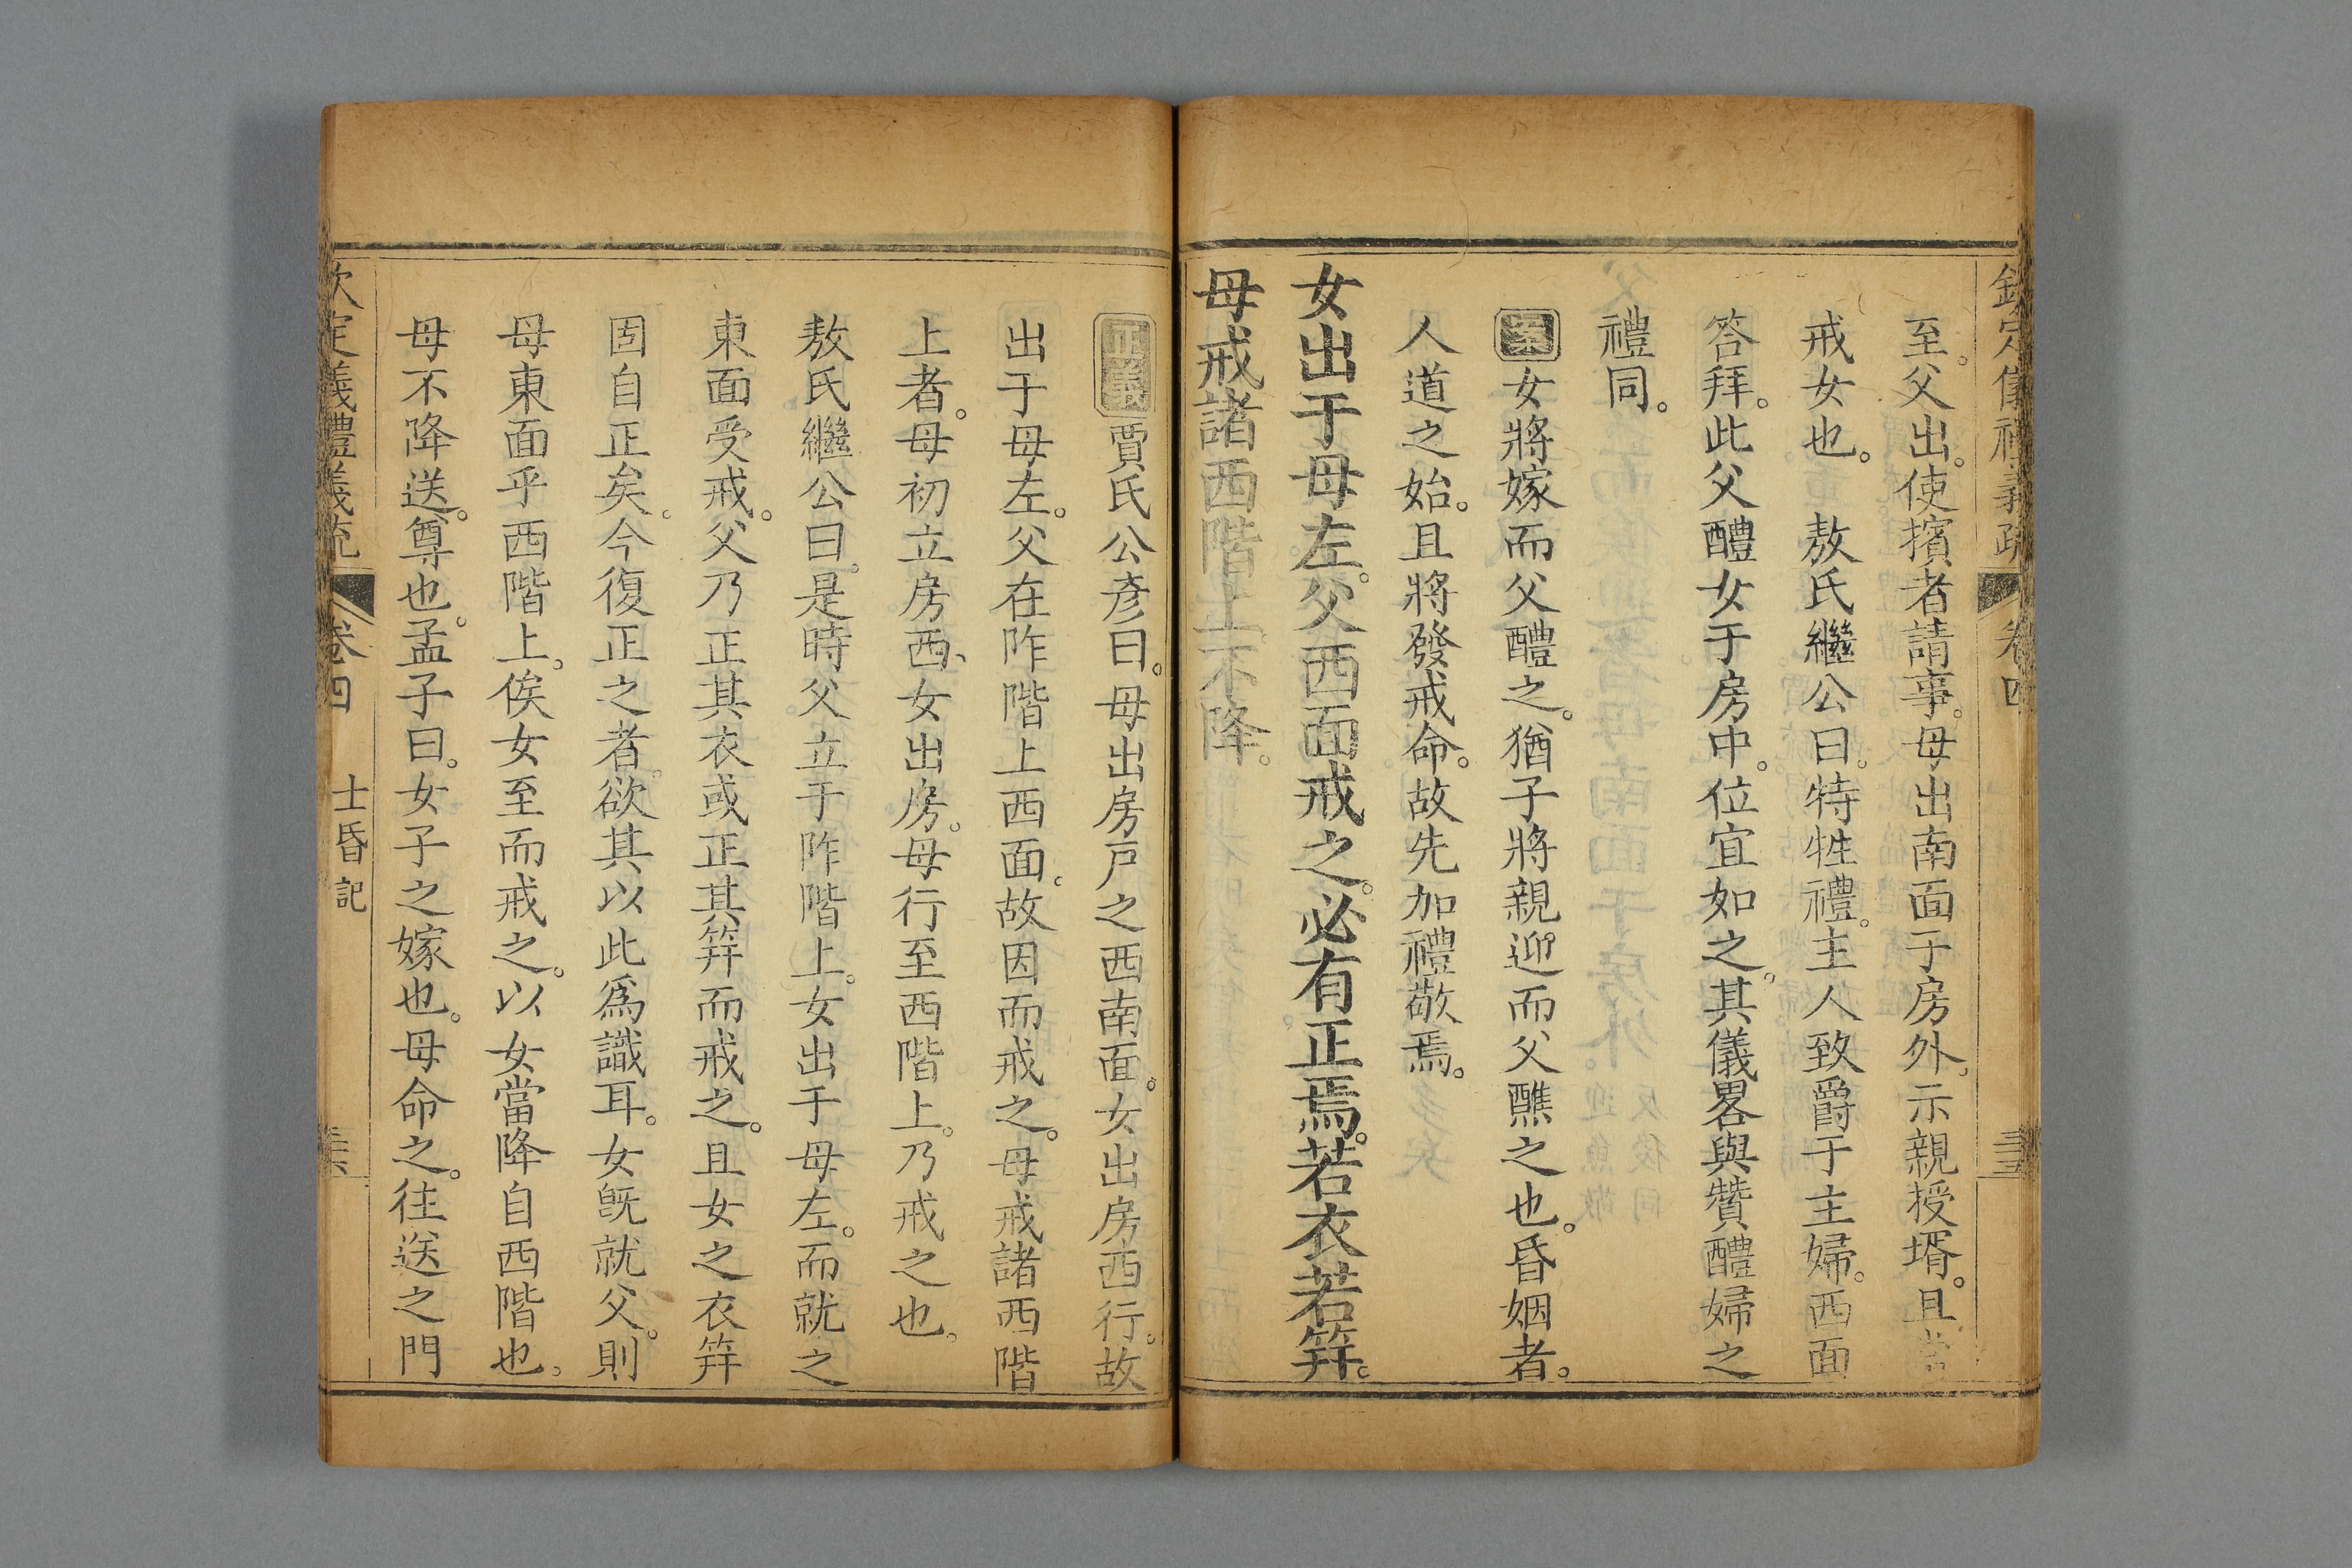 欽定儀禮義疏 卷四
至。父出。使擯者請事。母出南面于房外。示親授壻。且當
戒女也。 敖氏繼公曰。特牲禮。主人致爵于主婦。西面
答拜。此父醴女于房中。位宜如之。其儀畧與贊醴婦之
禮同。
案女將嫁而父醴之。猶子將親迎而父醮之也。昏姻者。
人道之始。且將發戒命。故先加禮敬焉。
女出于母左。父西面戒之。必有正焉。若衣若笄。
母戒諸西階上。不降。
正義賈氏公彥曰。母出房戶之西南面。女出房西行。故
出于母左。父在阼階上西面。故因而戒之。母戒諸西階
上者。母初立房西、女出房。母行至西階上。乃戒之也。
敖氏繼公曰。是時父立于阼階上。女出于母左。而就之
東面受戒。父乃正其衣或正其笄而戒之。且女之衣笄
固自正矣。今復正之者。欲其以此爲識耳。女旣就父。則
母東面乎西階上。俟女至而戒之。以女當降自西階也。
母不降送。尊也。孟子曰。女子之嫁也。母命之。往送之門
欽定義禮義疏 卷四 士昏記